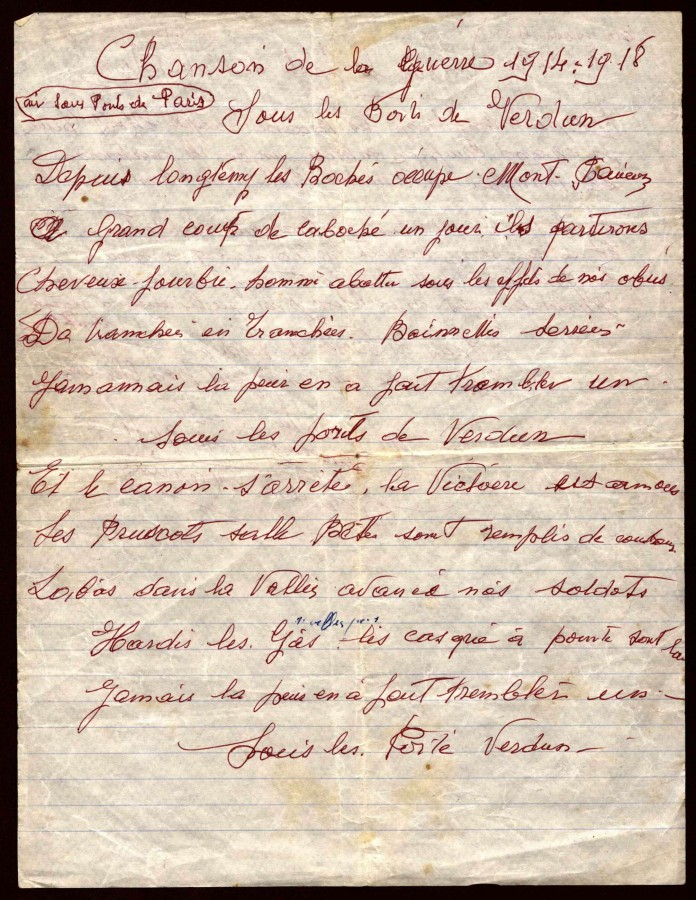 Chanson de la guérre 1914-1918
air sous Ponts de Paris
Sous les Forts de Verdun
Depuis longtemp les Bochés occupe Mont-
grand coup de caboché un jour ils partirons
Cheveux fourbu. homme abattu sous les effets de nos obus
De tranchée en tranchées. Boionnettes serrées
Jamamais la peur en a fait trembler un.
sous les forts de Verdun
Et le canon s'arréte, la Victoire est
Les Pruscots salle Bêtes sont remplis de
Labas dans la Vallée avance nos soldats
Hardis les Gàs les casqué à pointe sont la
Jamais la peur en à fait trembler un.
Sous les Forté Verdun